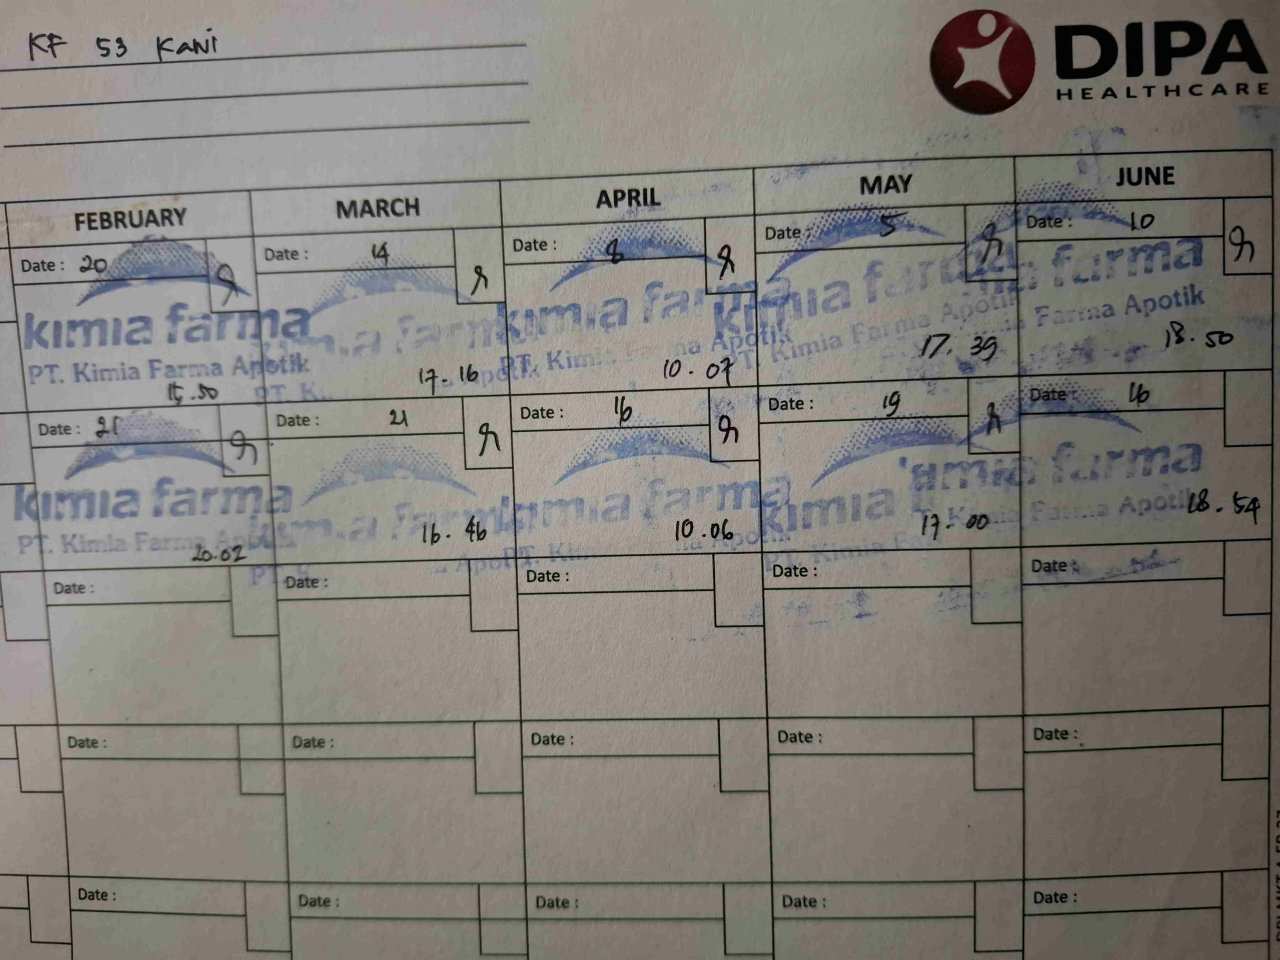 KF 53 Kani
DIPA
HEALTHCARE
FEBRUARY MARCH APRIL MAY JUNE
Date : 20 Date : 14 Date : 8 Date : 5 Date : 10
kimia farma kimia farma kimia farma kimia farma kimia farma
PT. Kimia Farma Apotik PT. Kimia Farma Apotik Kimia Farma Apotik Farma Apotik
15.50 17.16 10.07 17.39 18.50
Date : Date : 21 Date : 16 Date : 19 Date : 16
kimia farma kimia farma kimia farma kimia farma
PT. Kimia Farma Apotik PT. Kimia Farma Apotik
20.02 16.46 10.06 17.00 18.54
Date : Date : Date : Date : Date :
Date : Date : Date : Date : Date :
Date : Date : Date : Date : Date :